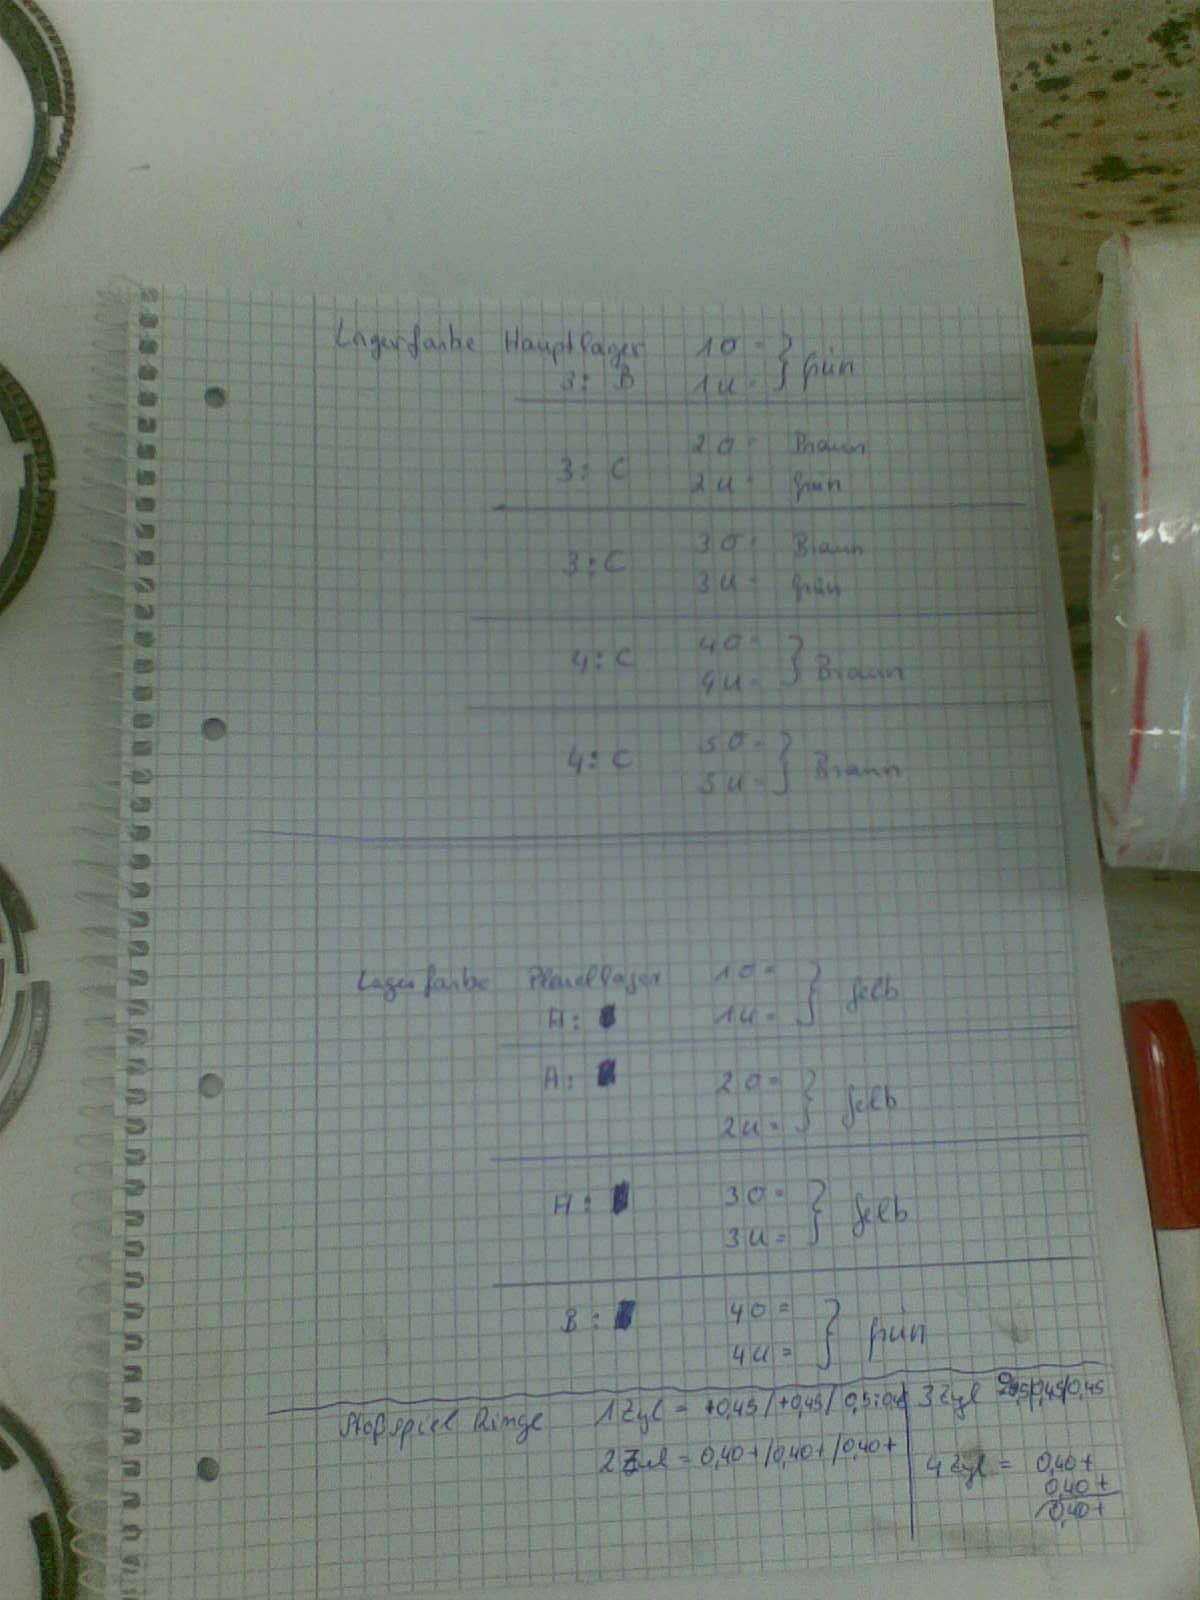 Lagerfarbe Hauptlager 1O = } grün
3: B 1U =
3: C 2O = Braun
2U = grün
3: C 3O = Braun
3U = grün
4: C 4O = } Braun
4U =
4: C 5O = } Braun
5U =
Lagerfarbe Pleuellager 1O = } gelb
A: 1U =
A: 2O = } gelb
2U =
A: 3O = } gelb
3U =
B: 4O = } grün
4U =
Stoßspiel Ringe 1 Zyl = +0,45 / +0,45 / 3 Zyl /0,45/0,45
2 Zyl = 0,40+ /0,40+ /0,40+ 4 Zyl = 0,40+
0,40+
0,40+